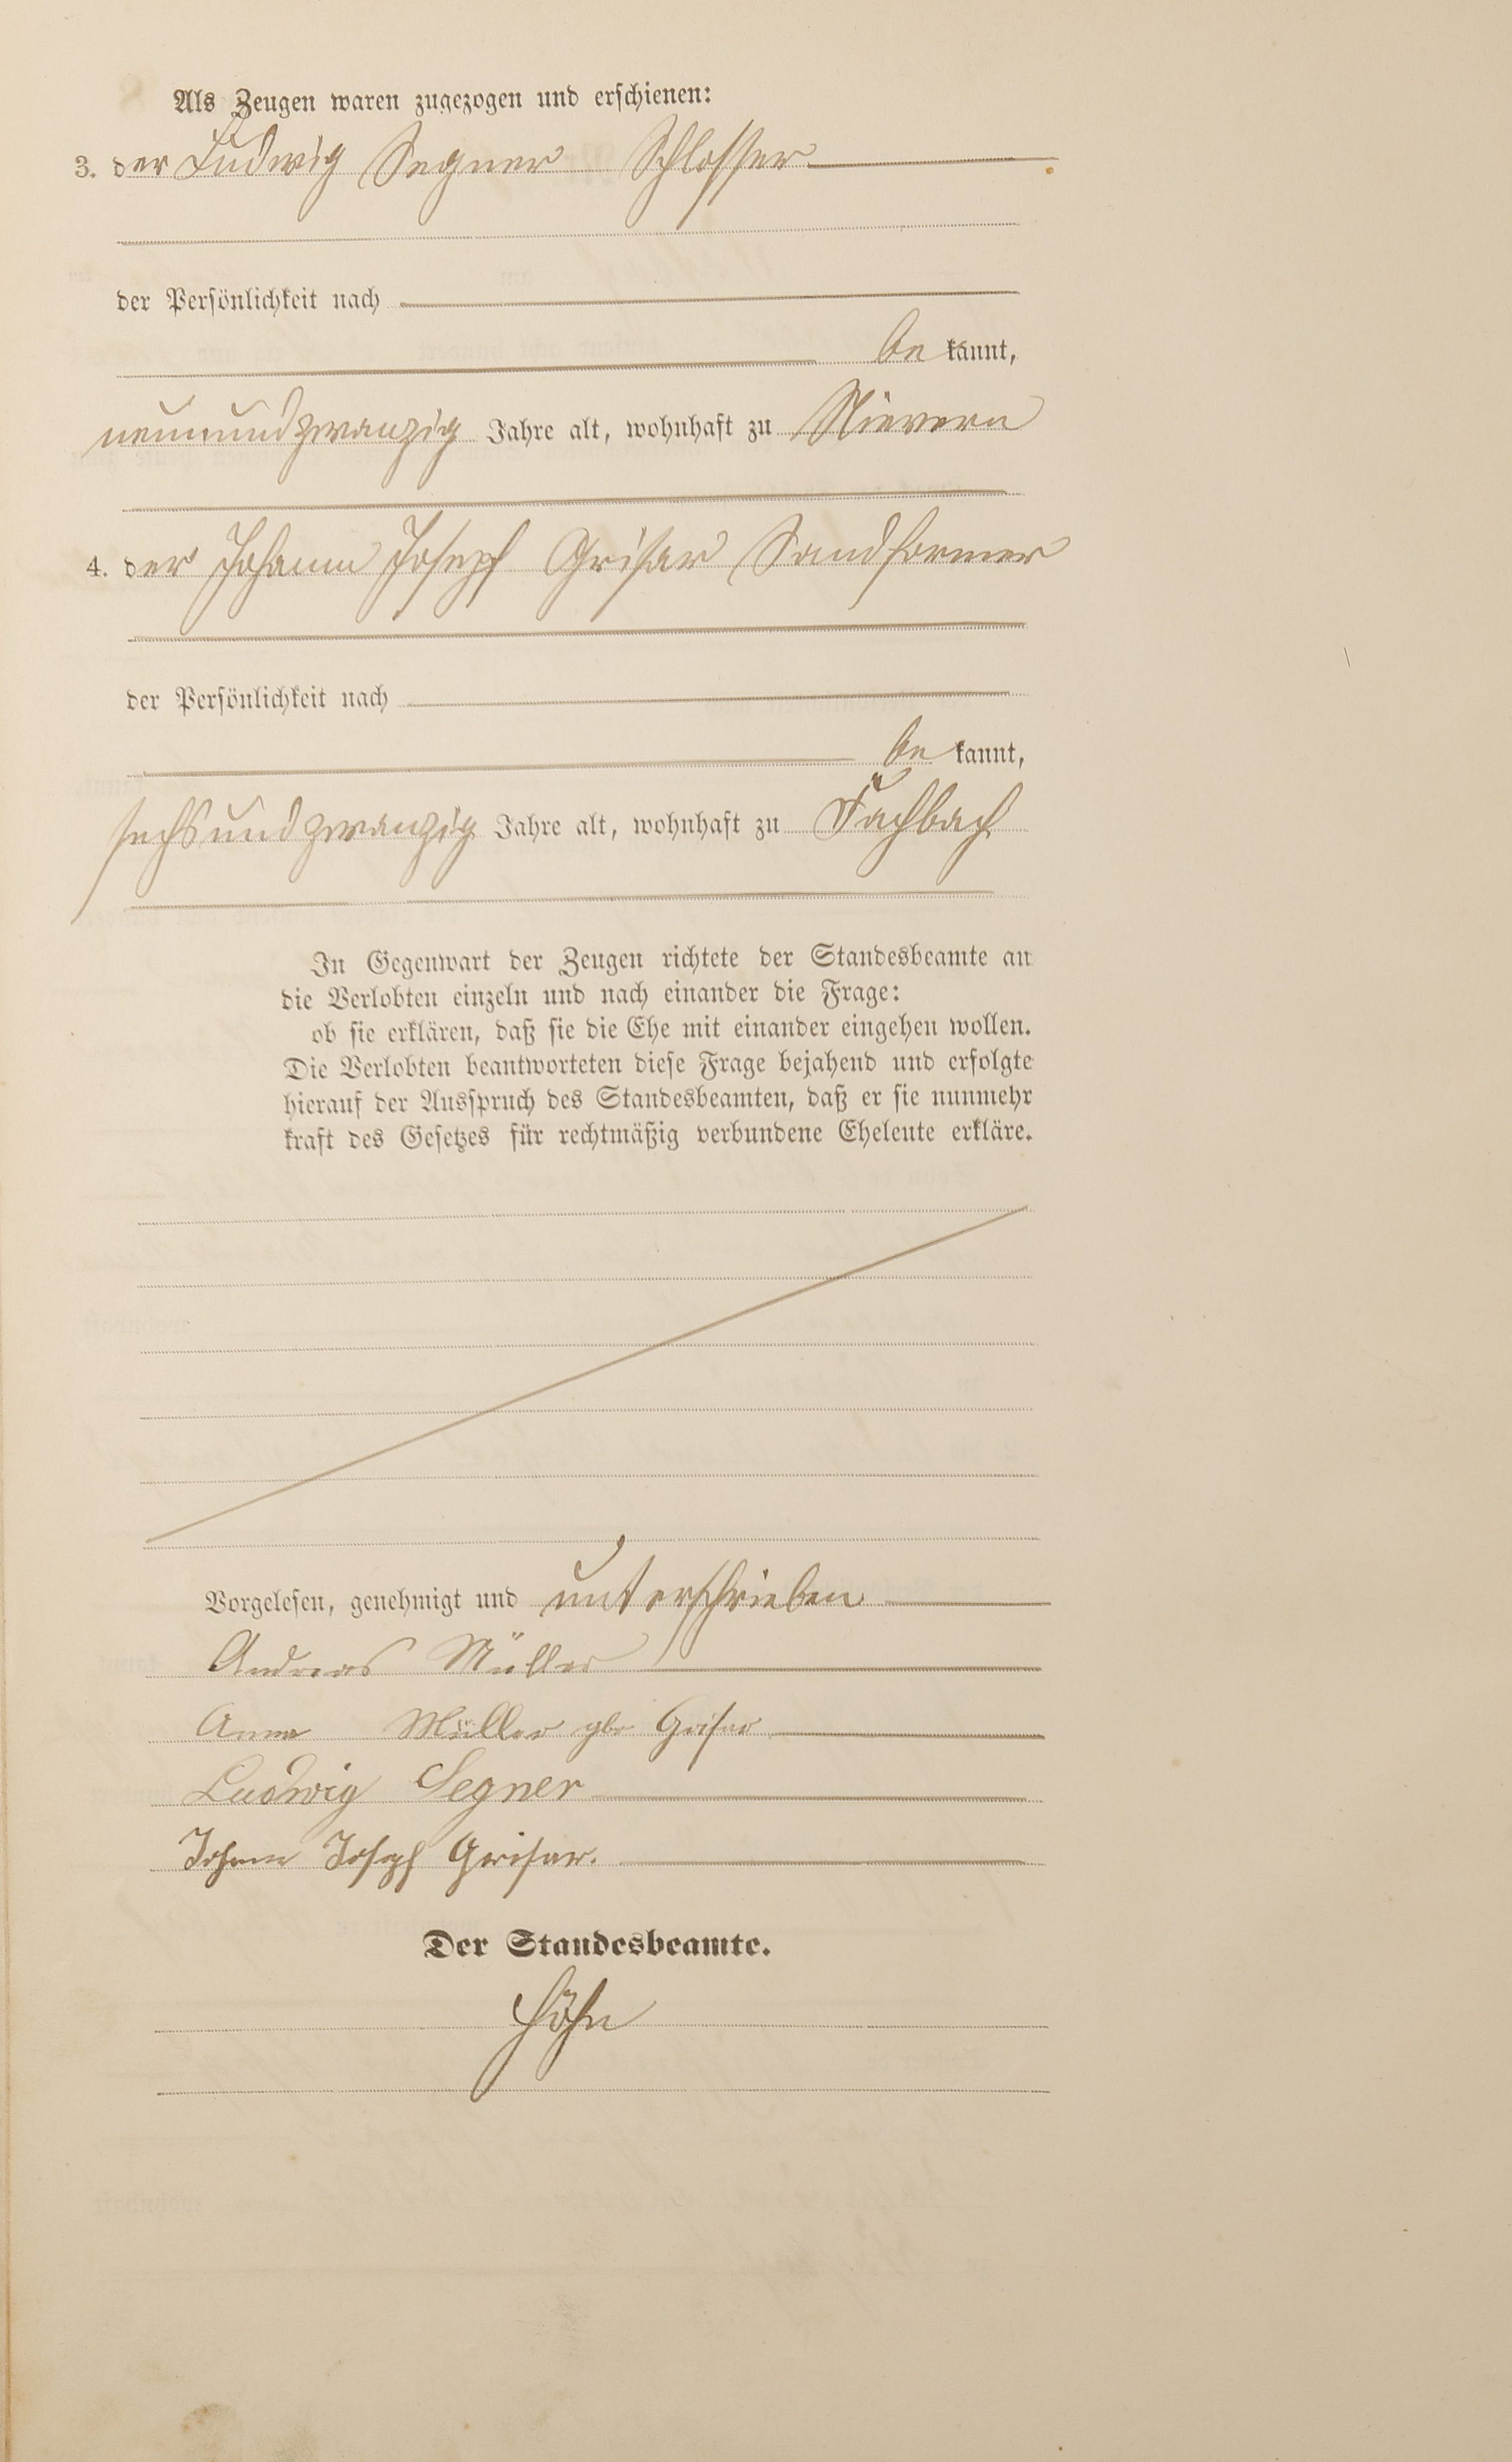 Als Zeugen waren zugezogen und erschienen:
3. der Ludwig Segner Schlosser
der Persönlichkeit nach
be kannt,
neunundzwanzig Jahre alt, wohnhaft zu Nievern
4. der Johann Joseph Grisar Sandformer
der Persönlichkeit nach
be kannt,
sechsundzwanzig Jahre alt, wohnhaft zu Fachbach
In Gegenwart der Zeugen richtete der Standesbeamte an
die Verlobten einzeln und nach einander die Frage:
ob sie erklären, daß sie die Ehe mit einander eingehen wollen.
Die Verlobten beantworteten diese Frage bejahend und erfolgte
hierauf der Ausspruch des Standesbeamten, daß er sie nunmehr
kraft des Gesetzes für rechtmäßig verbundene Eheleute erkläre.
Vorgelesen, genehmigt und unterschrieben
Andreas Müller
Anna Müller gbr Grisar
Ludwig Segner
Johann Joseph Grisar.
Der Standesbeamte.
Höhn